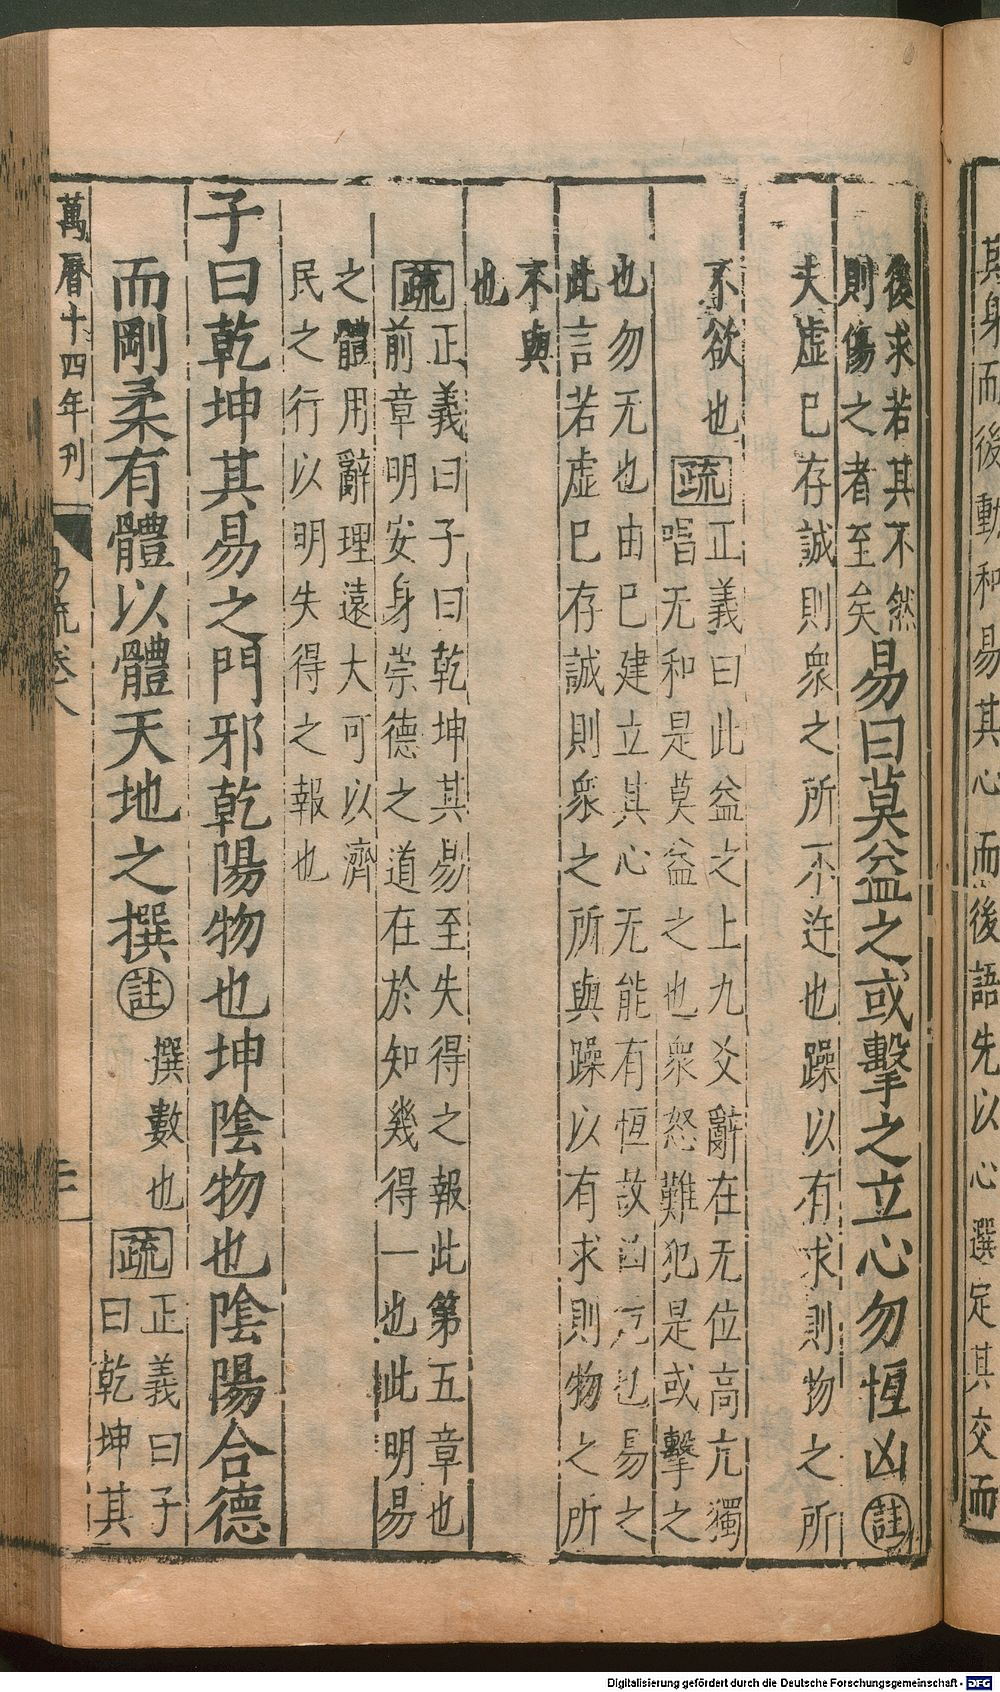 其身而後動和易其心而後語先以心選定其交而
後求若其不然
則傷之者至矣
易曰莫益之或擊之立心勿恒凶註
夫虛已存誠則衆之所不迕也躁以有求則物之所
不欲也疏
正義曰此益之上九爻辭在无位高亢獨
唱无和是莫益之也衆怒難犯是或擊之
也勿无也由已建立其心无能有恒故凶危也易之
此言若虛已存誠則衆之所與躁以有求則物之所
不與
也
疏
正義曰子曰乾坤其易至失得之報此第五章也
前章明安身崇德之道在於知幾得一也此明易
之體用辭理遠大可以濟
民之行以明失得之報也
子曰乾坤其易之門邪乾陽物也坤陰物也陰陽合德
而剛柔有體以體天地之撰註
撰數也疏
正義曰子
曰乾坤其
萬曆十四年刊
易疏卷八
Digitalisierung gefördert durch die Deutsche Forschungsgemeinschaft - DFG